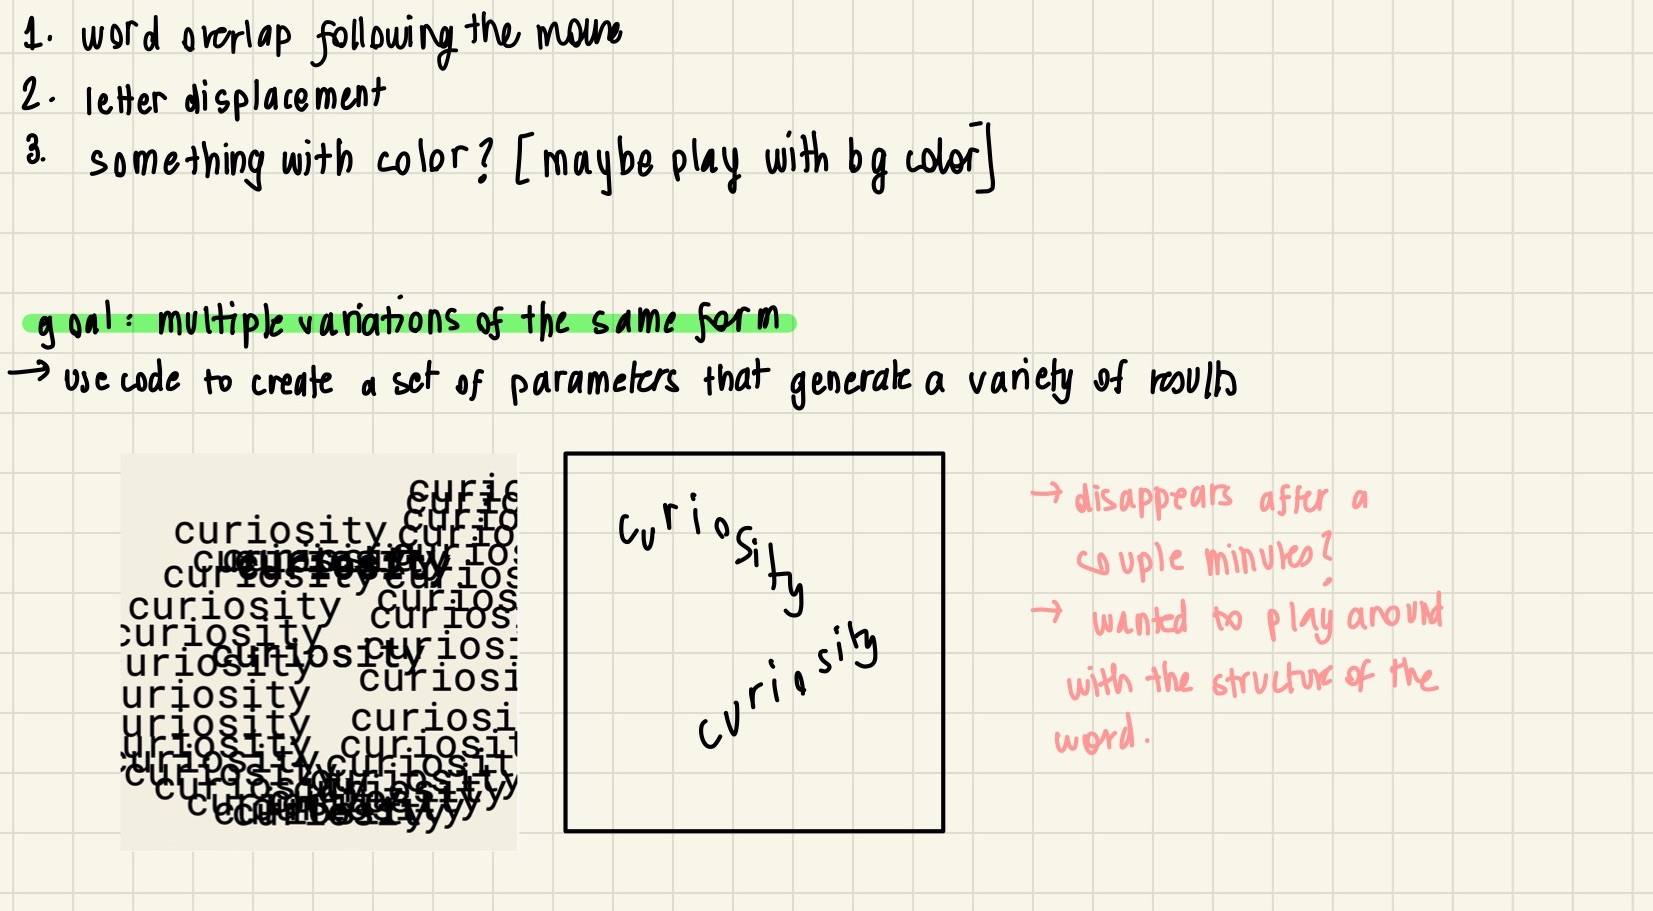 1. word overlap following the mouse
2. letter displacement
3. something with color? [maybe play with bg color]
goal: multiple variations of the same form
→ use code to create a set of parameters that generate a variety of results
curio
curio
curio
curiosity curio
curiosity curios
curiosity curios
curiosity curios
curiosity curiosi
curiosity curiosi
uriosity curiosity
uriosity curiosi
uriosity curiosi
uriosity curiosit
curiosity curiosity
curiosity curiosity
curiosity
curiosity
curiosity
curiosity
→ disappears after a
couple minutes?
→ wanted to play around
with the structure of the
word.